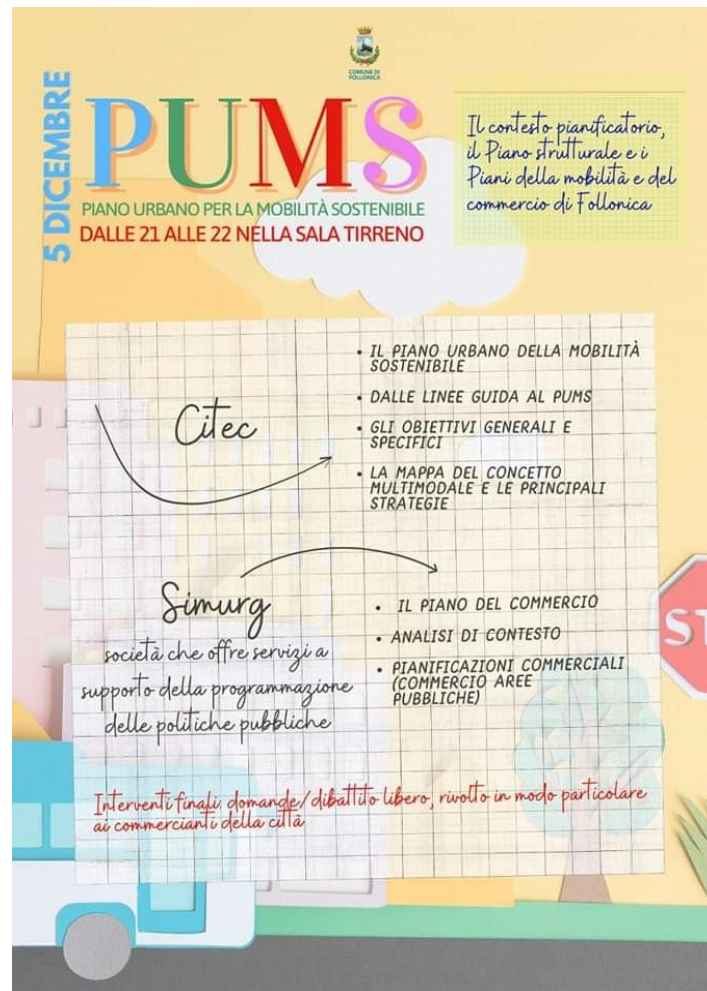 COMUNE DI
FOLLONICA
5 DICEMBRE
PUMS
PIANO URBANO PER LA MOBILITÀ SOSTENIBILE
DALLE 21 ALLE 22 NELLA SALA TIRRENO
Il contesto pianificatorio,
il Piano strutturale e i
Piani della mobilità e del
commercio di Follonica
Citec
• IL PIANO URBANO DELLA MOBILITÀ
SOSTENIBILE
• DALLE LINEE GUIDA AL PUMS
• GLI OBIETTIVI GENERALI E
SPECIFICI
• LA MAPPA DEL CONCETTO
MULTIMODALE E LE PRINCIPALI
STRATEGIE
Simurg
società che offre servizi a
supporto della programmazione
delle politiche pubbliche
• IL PIANO DEL COMMERCIO
• ANALISI DI CONTESTO
• PIANIFICAZIONI COMMERCIALI
(COMMERCIO AREE
PUBBLICHE)
ST
Interventi finali: domande/dibattito libero, rivolto in modo particolare
ai commercianti della città